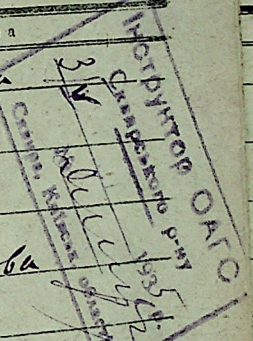 Інструктор ОАГС
Сквирського р-ну
3/V 1935 р.
Сквира, Київськ. області
ва